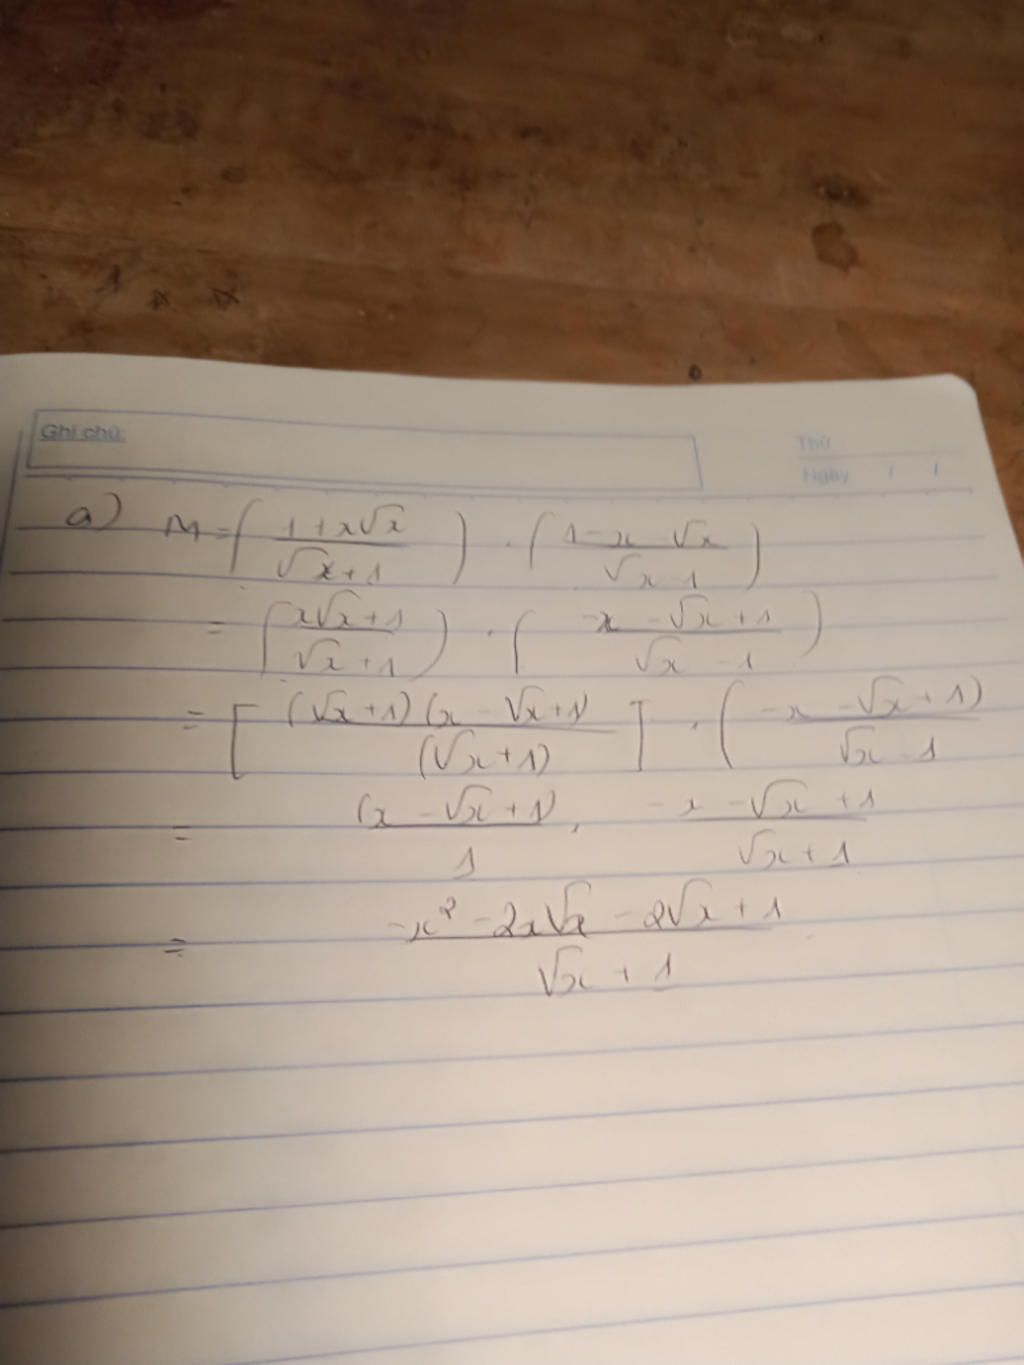 Ghi chú:
Thứ
Ngày / /
a) M = (\frac{1+x√x}{√x+1}) . (\frac{1-x-√x}{√x-1})
= (\frac{x√x+1}{√x+1}) . (\frac{-x-√x+1}{√x-1})
= [\frac{(√x+1)(x-√x+1)}{(√x+1)}] . (\frac{-x-√x+1)}{√x-1}
= \frac{(x-√x+1)}{1} . \frac{-x-√x+1}{√x+1}
= \frac{-x²-2x√x-2√x+1}{√x+1}